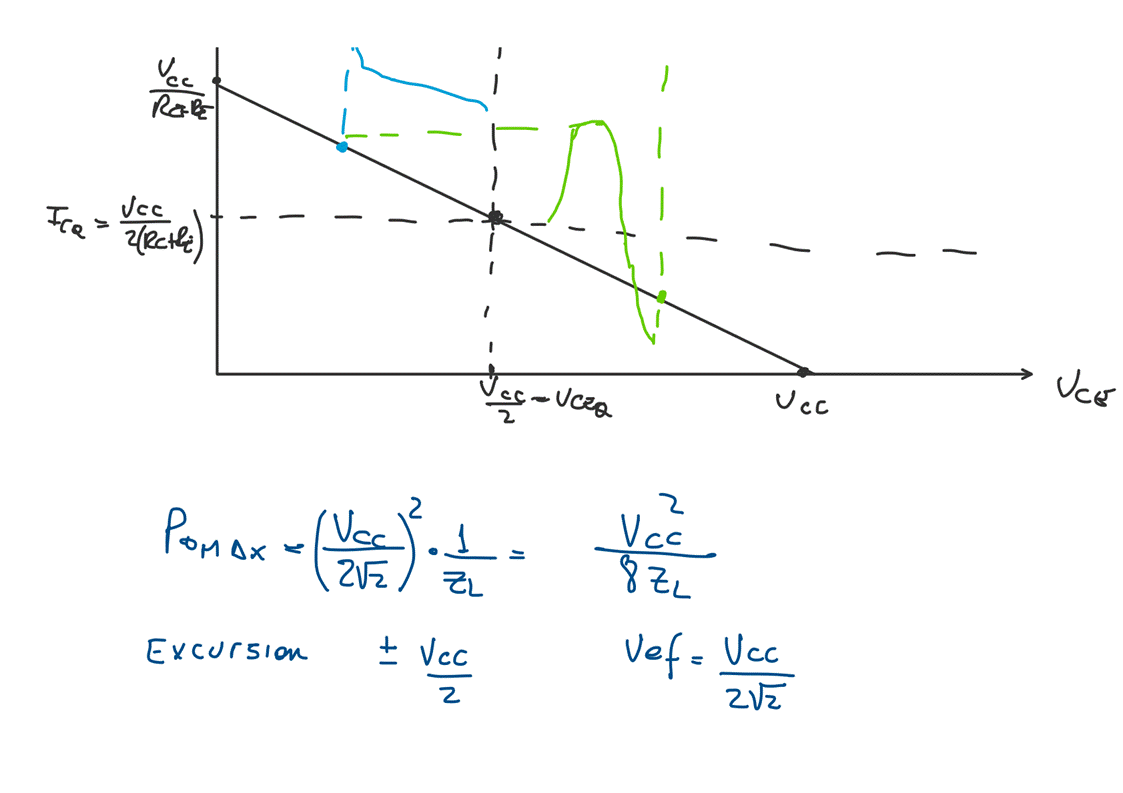 Vcc/(Rc+RE)
ICQ = Vcc/2(Rc+RE)
Vcc/2 - VCEQ
Vcc
VCE
PoMAX = (Vcc/2√2)² · 1/ZL = Vcc²/8ZL
Excursion ± Vcc/2 Vef = Vcc/2√2